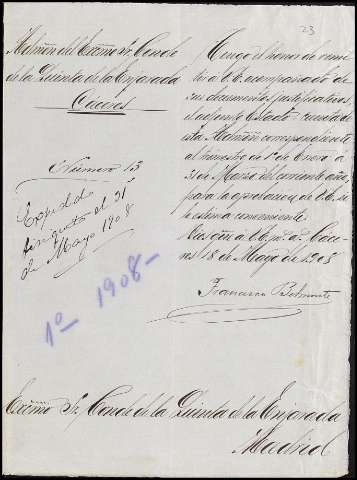 23
Admon del Excmo Sr. Conde
de la Quinta de la Enjarada
Cáceres
Número 13
Expedido
finiquito el 31
de Mayo 1908
1º 1908-
Tengo el honor de remi
tir á V.E. acompañado de
sus documentos justificativos,
el adjunto Estado-cuenta de
esta Admon correspondiente
al trimestre de 1º de Enero á
31 de Marzo del corriente año,
para la aprobacion de V.E. si
lo estima conveniente.
Cáce
res 18 de Mayo de 1908
Francisco Belmonte
Excmo Sr. Conde de la Quinta de la Enjarada
Madrid